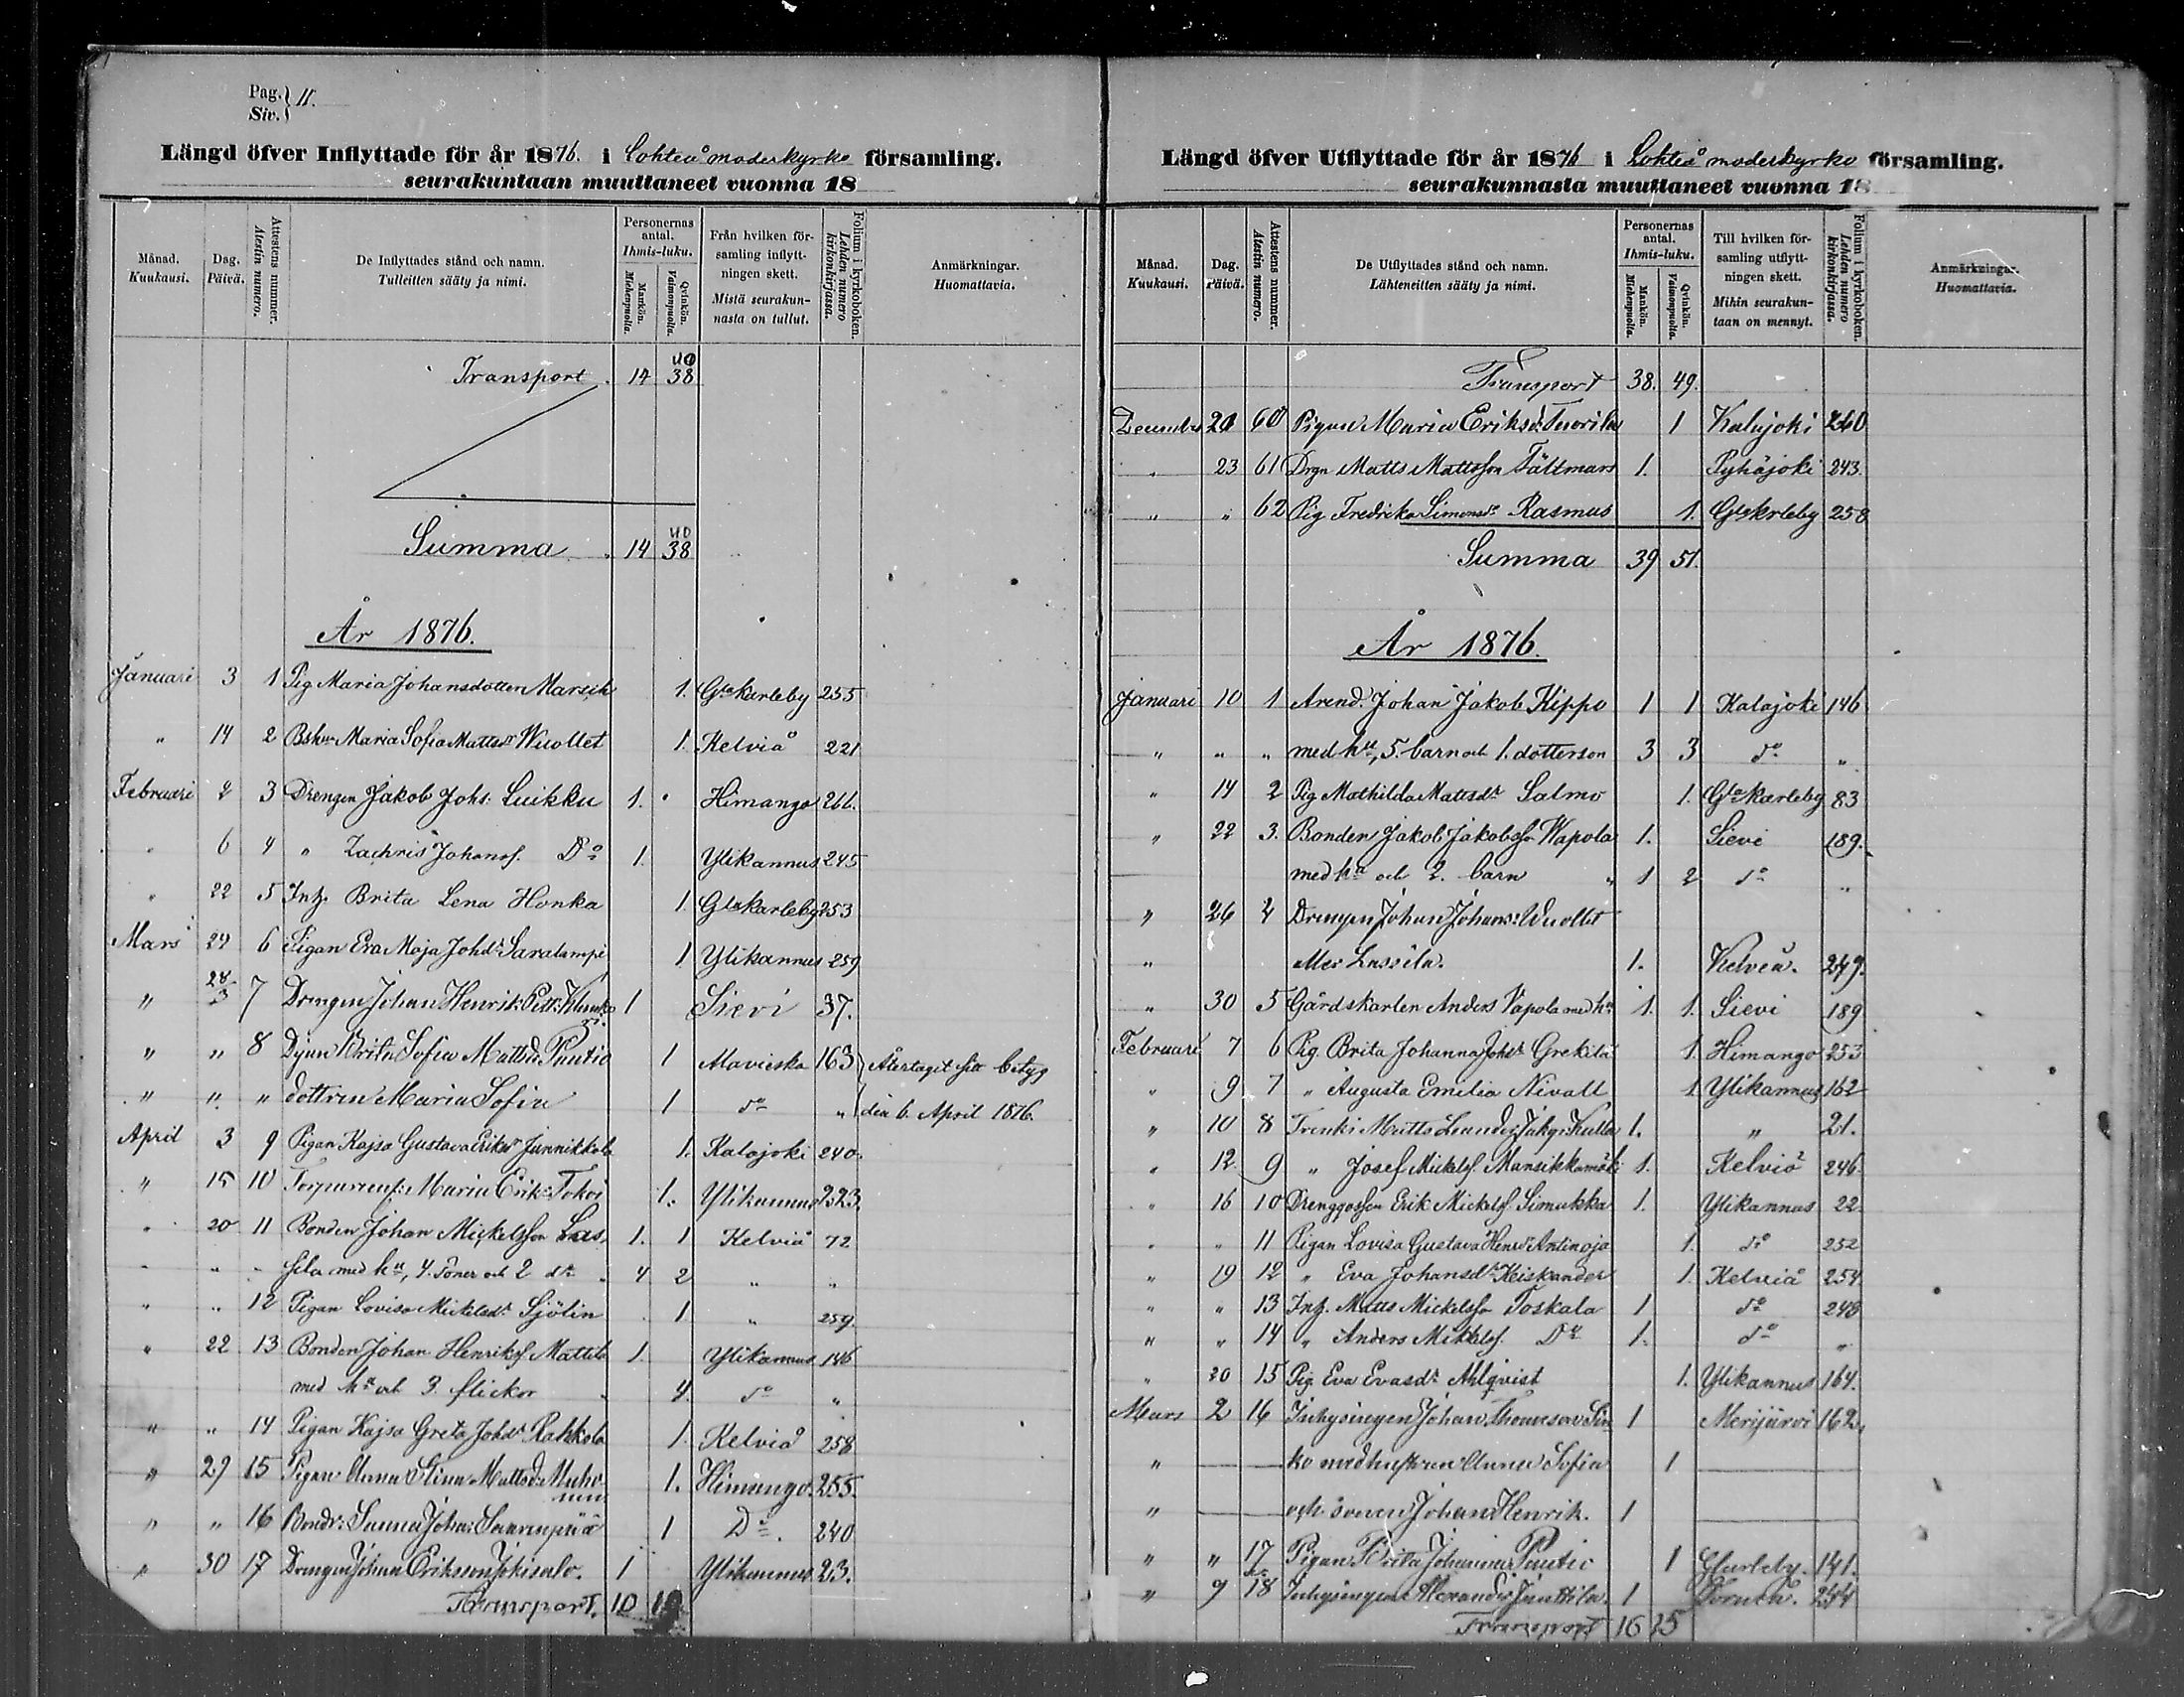 Pag. } 11.
Siv. }
Längd öfver Inflyttade för år 1876. i Lohteå moderkyrko församling.
seurakuntaan muuttaneet vuonna 18
Månad. Kuukausi.
Dag. Päivä.
Attestens nummer. Atestin numero.
De Inflyttades stånd och namn. Tulleitten sääty ja nimi.
Personernas antal. Ihmis-luku.
Mankön. Miehenpuolta.
Qvinkön. Vaimonpuolta.
Från hvilken församling inflyttningen skett. Mistä seurakunnasta on tullut.
Folium i kyrkoboken. Lehden numero kirkonkirjassa.
Anmärkningar. Huomattavia.
Transport. 14 38 40
Summa 14 38 40
År 1876.
Januari 3 1 Pig Maria Johansdotter Marsik 1. Gla karleby 255
" 14 2 Maria Sofia Mattsdr Wuollet 1. Kelviå 221
Februari 2 3 Drengen Jakob Johs. Luikku 1. Himango 266.
" 6 4 " Zachris Johansf. Do 1. Ylikannus 245
" 22 5 Inh. Brita Lena Honka 1 Gla karleby 253
Mars 24 6 Pigan Eva Maja Johdr Saralampi 1 Ylikannus 259
" 28/3 7 Drengen Johan Henrik Pettr. 1 Sievi 37.
" " 8 Brita Sofia Mattsdr Puutio 1 Alavieska 163 Återtagit sitt betyg
" " " dottren Maria Sofia 1 do " den 6. April 1876.
April 3 9 Pigan Kajsa Gustava Eriksdr Junnikkala 1. Kalajoki 240.
" 15 10 Maria Erik: Tokoi 1. Ylikannus 223.
" 20 11 Bonden Johan Mickelsson Las, 1. 1 Kelviå 72
" " " sila med hu, 4. söner och 2 dr. 4 2 " "
" " 12 Pigan Lovisa Mickelsdr Sjölin 1 " 259.
" 22 13 Bonden Johan Henriksf. Mattila 1. Ylikannus 146
med hu och 3. flickor 4. do "
" " 14 Pigan Kajsa Greta Johdr Rahkola 1. Kelviå 258
" 29 15 Pigan Anna Stina Mattsdr Muhonen 1. Himango. 255.
" " 16 Sanna Johan: Saarenpää 1 Do. 240
" 30 17 Drengen Johan Eriksson Jokisalo. 1 Ylikannus 23.
Transport. 10
Längd öfver Utflyttade för år 1876 i Lohteå moderkyrko församling.
seurakunnasta muuttaneet vuonna 18
Månad. Kuukausi.
Dag. Päivä.
Attestens nummer. Atestin numero.
De Utflyttades stånd och namn. Lähteneitten sääty ja nimi.
Personernas antal. Ihmis-luku.
Mankön. Miehenpuolta.
Qvinkön. Vaimonpuolta.
Till hvilken församling utflyttningen skett. Mihin seurakuntaan on mennyt.
Folium i kyrkoboken. Lehden numero kirkonkirjassa.
Anmärkningar. Huomattavia.
Transport 38. 49.
December 20 60 Pigan Maria Eriksd: Tuorila 1 Kalajoki 260
" 23 61 Drgn Matts Mattsson Fältmars 1. Pyhäjoki 243.
" " 62 Pig Fredrika Simonsdr Rasmus 1. Gla krleby 258
Summa 39 51.
År 1876.
Januari 10 1 Arend. Johan Jakob Kippo 1 1 Kalajoki 146
" " " med hu, 5. barn och 1. dotterson 3 3 do "
" 14 2 Pig Mathilda Mattsdr Salmo 1. Gla karleby 83
" 22 3. Bonden Jakob Jakobsson Wapola 1. Sievi 189.
med hu och 2. barn 1 2 do "
" 26 4 Drengen Johan Johans: Wuollet
" eller Lassila. 1. Kelveå. 249.
" 30 5 Gårdskarlen Anders Vapola med hu 1. 1. Sievi 189
Februari 7 6 Pig Brita Johanna Johdr Grekilä 1. Himango 253
" 9 7 " Augusta Emilia Nivall 1 Ylikannus 162
" 10 8 Matts Leander Kulla 1. " 21.
" 12. 9 " Josef Mickelsf. Mansikkamäki 1. Kelviå 246.
" 16 10 Drenggossen Erik Mickelsf. Simukka 1. Ylikannus 22.
" " 11 Pigan Lovisa Gustava Henrdr Antinoja 1. do 252
" 19 12 " Eva Johansdr Keiskander 1. Kelviå 254.
" " 13 Inh. Matts Mickelsson Toskala 1 do 248
" " 14 " Anders Mickelsf. Do 1. do "
" 20 15 Pig. Eva Evasdr Ahlqvist 1. Ylikannus 164.
Mars 2 16 Inhysingen Johan Thomasson Sin 1 Merijärvi 162.
" ko med hustrun Anna Sofia 1
" och sonen Johan Henrik. 1
" " 17 Pigan Brita Johanna Puutio 1 Glkarleby. 141.
" 9 18 Inhysingen Alexander Junttila. 1 Torneå. 254
Transport 16 15